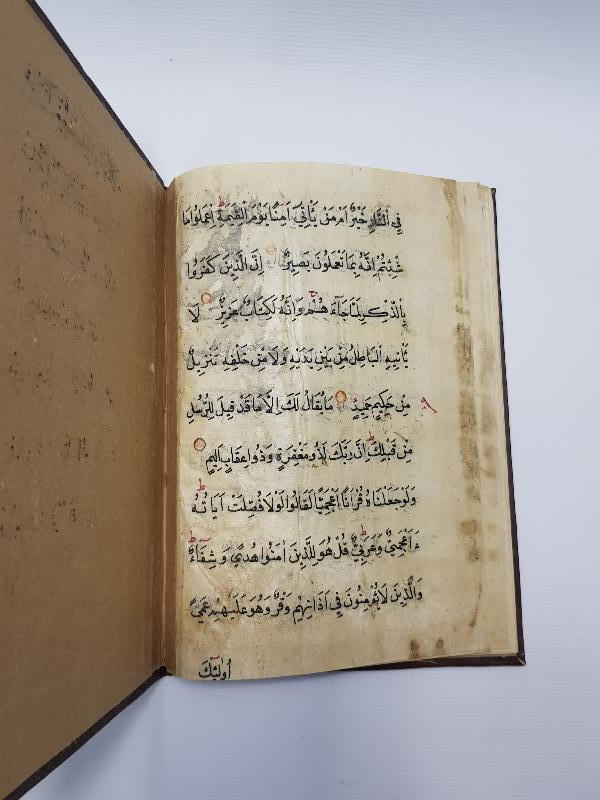 فِي النَّارِ خَيْرٌ اَمْ مَنْ يَأْتِي اٰمِنًا يَوْمَ الْقِيٰمَةِ اِعْمَلُوا مَا
شِئْتُمْ اِنَّهُ بِمَا تَعْمَلُونَ بَصِيرٌ اِنَّ الَّذِينَ كَفَرُوا
بِالذِّكْرِ لَمَّا جَآءَهُمْ وَاِنَّهُ لَكِتَابٌ عَزِيزٌ لَا
يَأْتِيهِ الْبَاطِلُ مِنْ بَيْنِ يَدَيْهِ وَلَا مِنْ خَلْفِهِ تَنْزِيلٌ
مِنْ حَكِيمٍ حَمِيدٍ مَا يُقَالُ لَكَ اِلَّا مَا قَدْ قِيلَ لِلرُّسُلِ
مِنْ قَبْلِكَ اِنَّ رَبَّكَ لَذُو مَغْفِرَةٍ وَذُو عِقَابٍ اَلِيمٍ
وَلَوْ جَعَلْنَاهُ قُرْاٰنًا اَعْجَمِيًّا لَقَالُوا لَوْلَا فُصِّلَتْ اٰيَاتُهُ
ءَاَعْجَمِيٌّ وَعَرَبِيٌّ قُلْ هُوَ لِلَّذِينَ اٰمَنُوا هُدًى وَشِفَآءٌ
وَالَّذِينَ لَا يُؤْمِنُونَ فِي اٰذَانِهِمْ وَقْرٌ وَهُوَ عَلَيْهِمْ عَمًى
اُولٰئِكَ